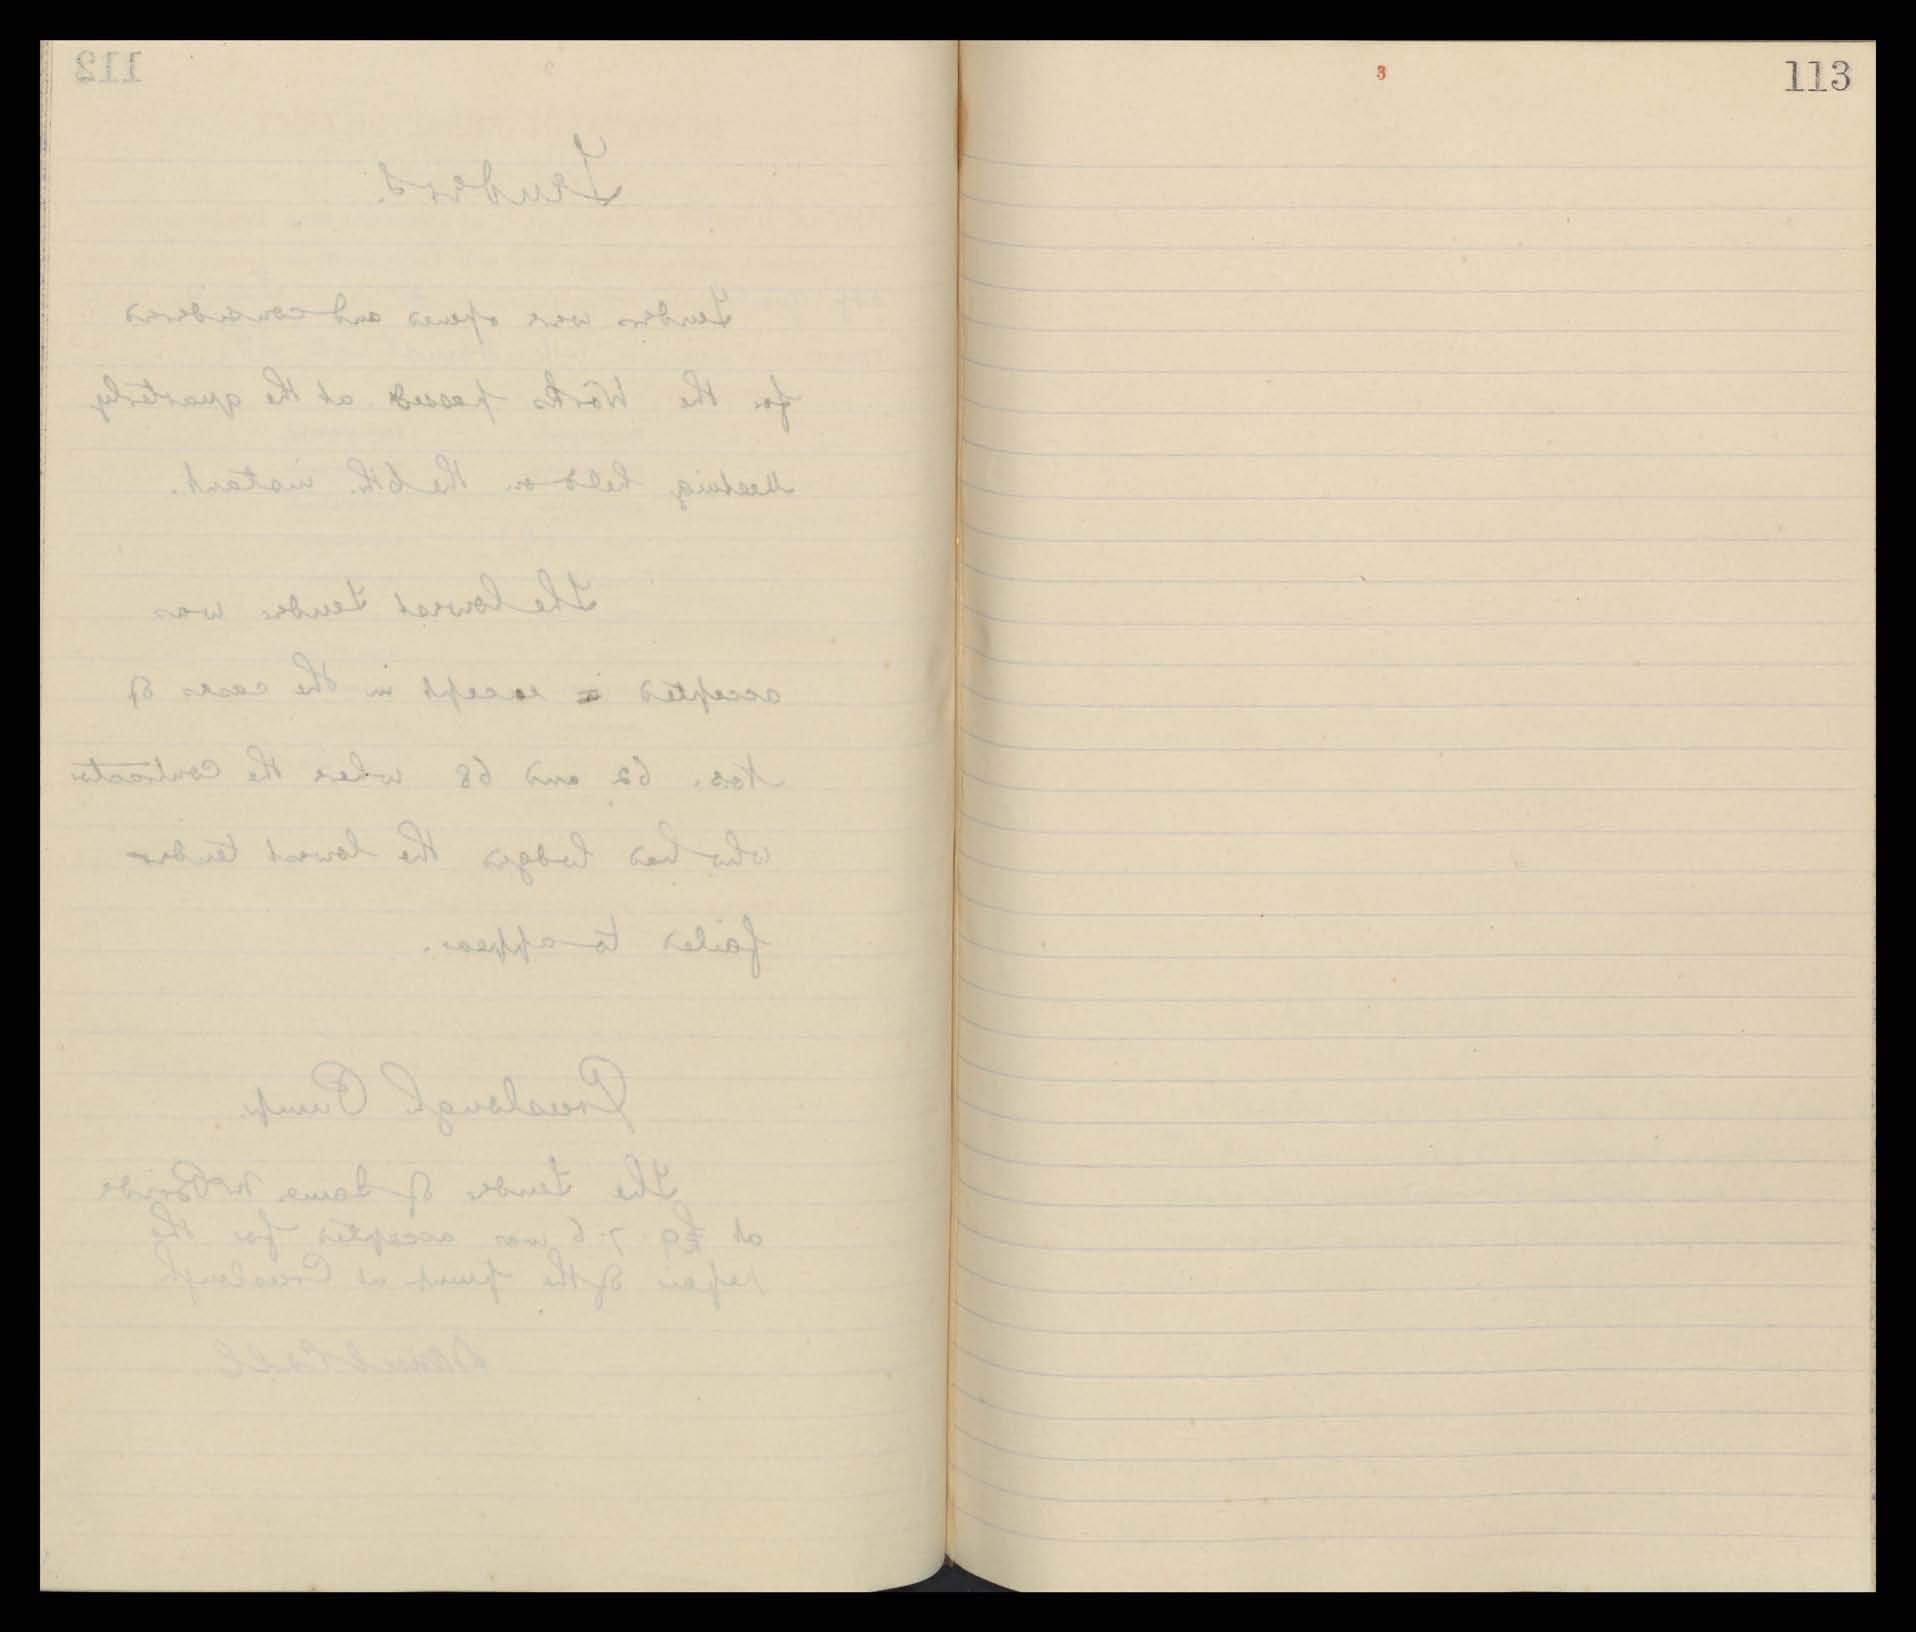 112
Tenders.
Tenders were opened and considered
for the Works passed at the quarterly
Meeting held on the 6th. instant.
The lowest tender was
accepted except in the cases of
Nos. 62 and 68 where the Contractor
who had lodged the lowest tender
failed to appear.
Creeslough Pump.
The tender of James McBride
at £9. 7. 6 was accepted for the
repair of the pump at Creeslough
3
113